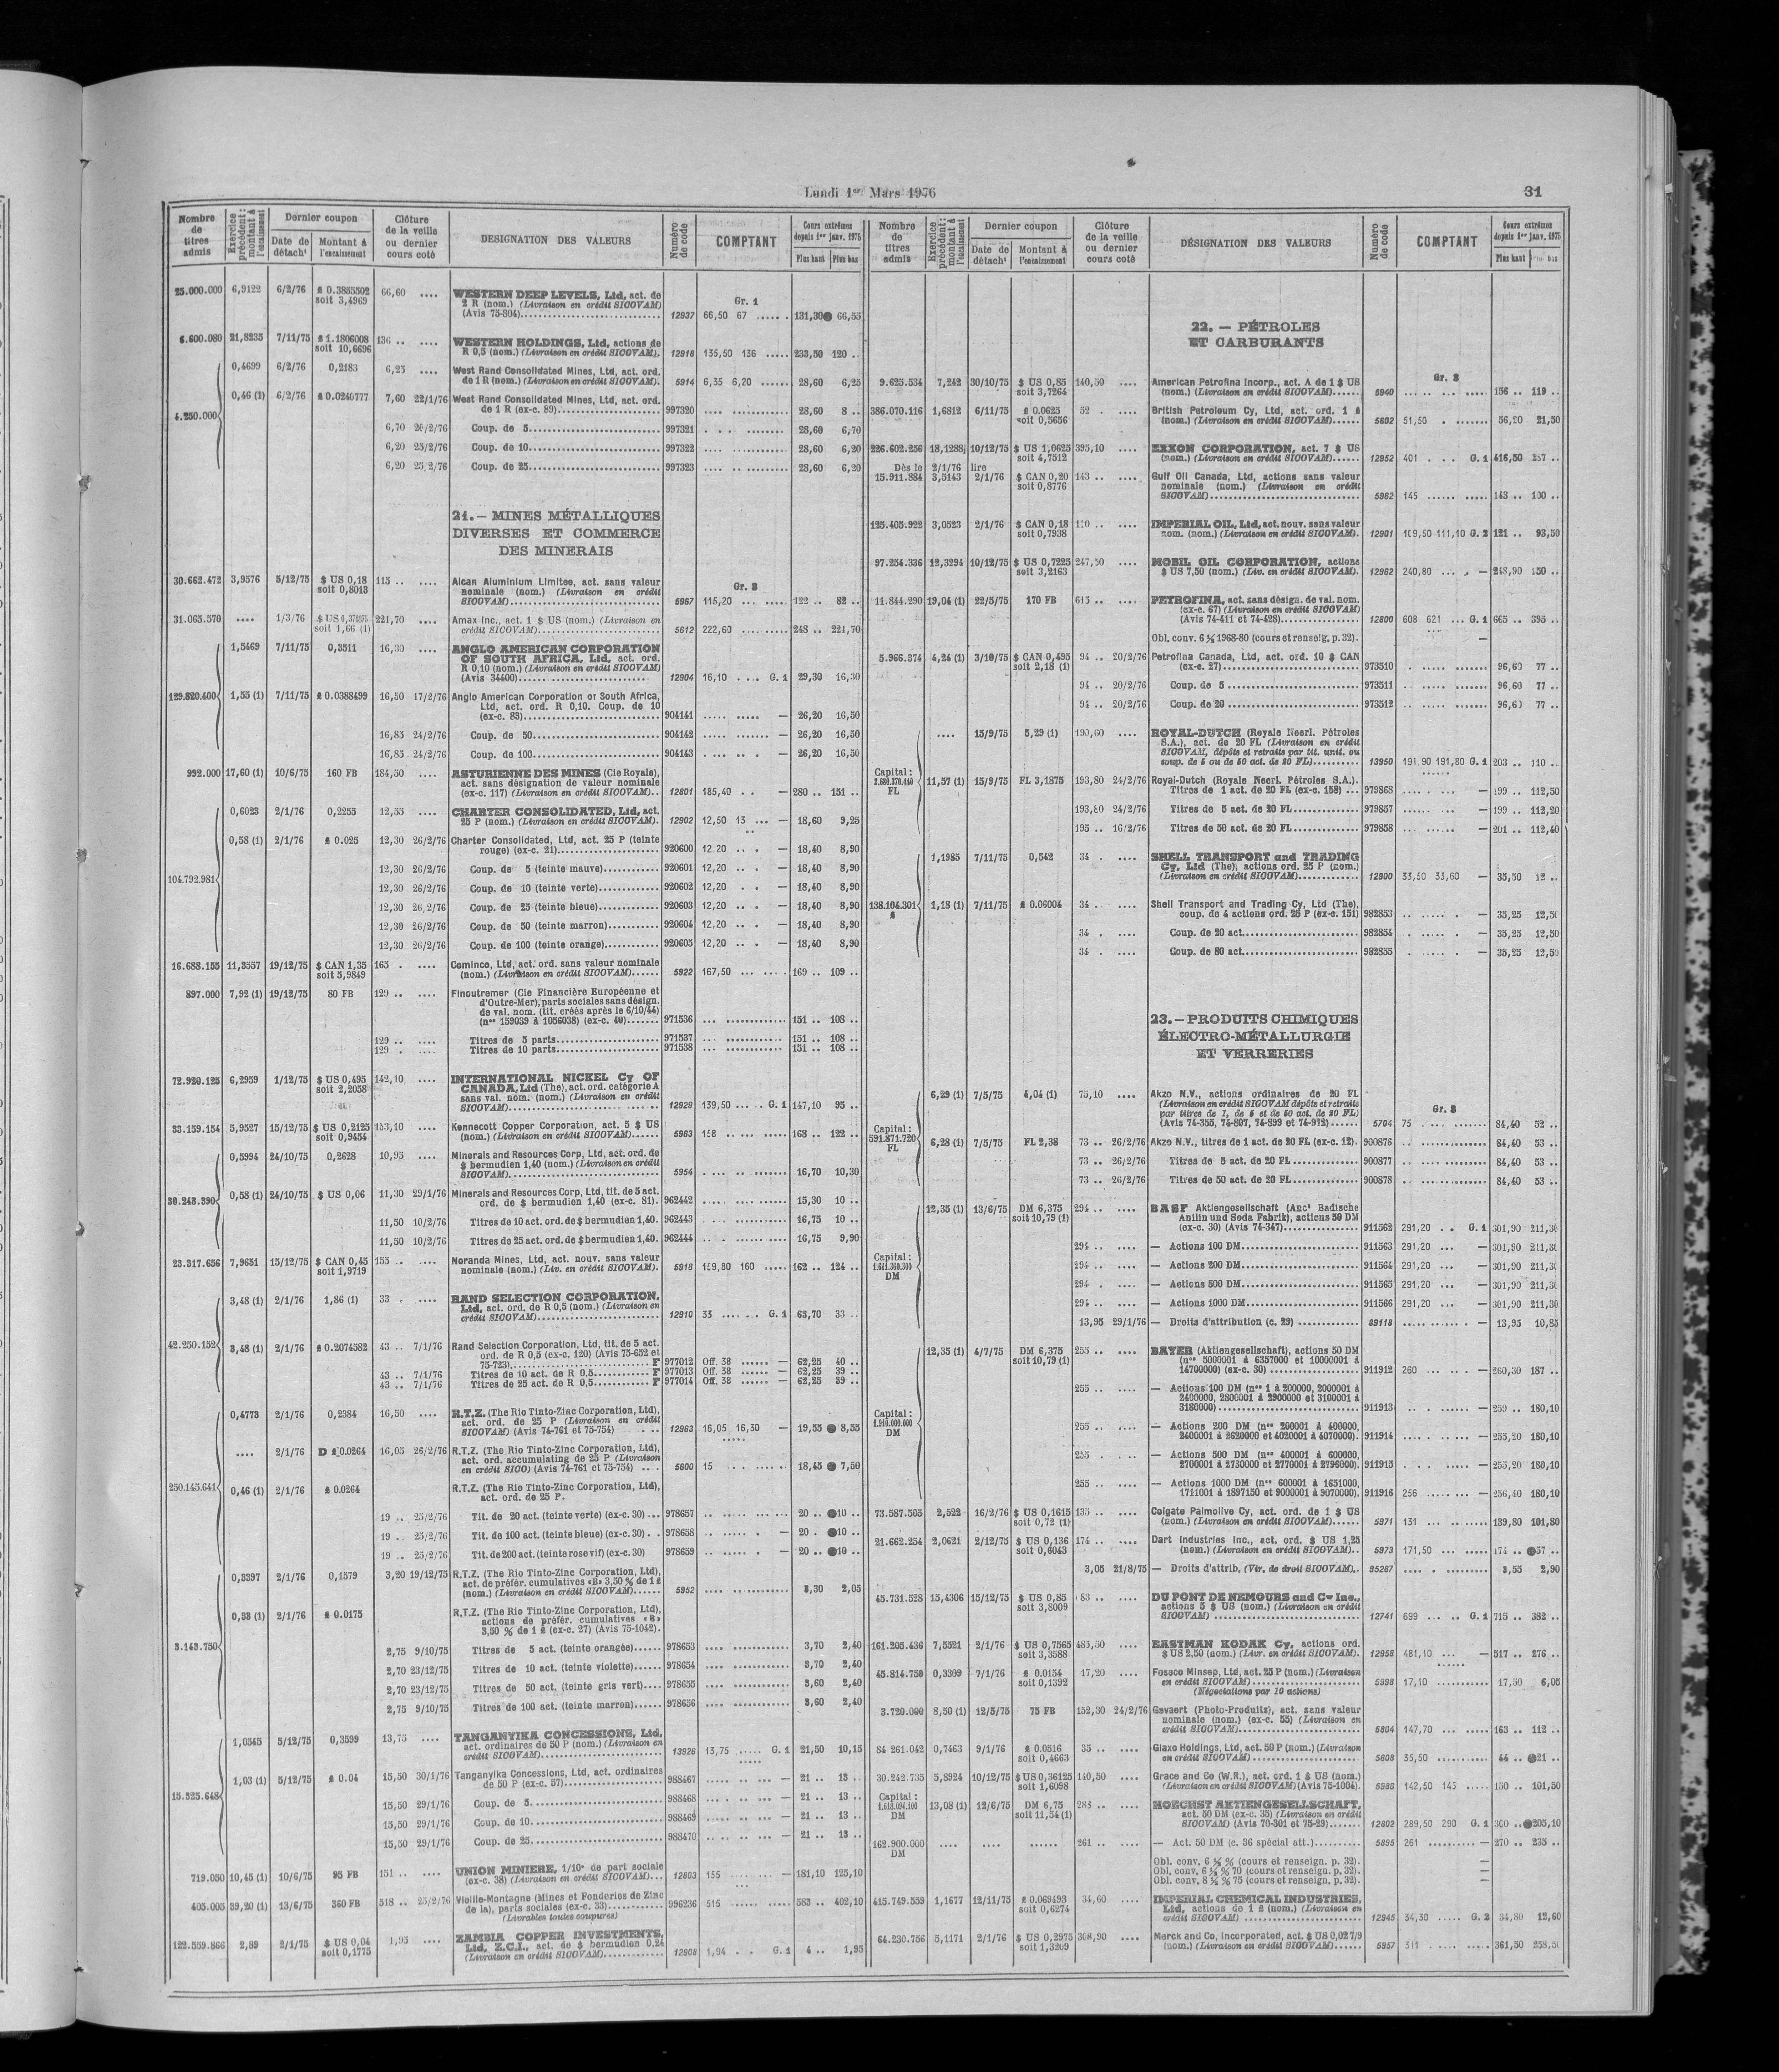 Lundi 1er Mars 1976
31
Nombre de titres admis | Exercice précédent : montant à l'encaissement | Dernier coupon | Date de détacht | Montant à l'encaissement | Clôture de la veille ou dernier cours coté | DESIGNATION DES VALEURS | Numéro de code | COMPTANT | Cours extrêmes depuis 1er janv. 1975 | Plus haut | Plus bas
25.000.000 6,9122 6/2/76 soit 3,4969 66,60 .... WESTERN DEEP LEVELS, Ltd, act. de
2 R (nom.) (Livraison en crédit SICOVAM)
(Avis 75-804) 12937 Gr. 1 66,50 67 131,30 66,55
6.600.080 21,8235 7/11/75 £ 1.1806008 soit 10,6696 136 .. .... WESTERN HOLDINGS, Ltd, actions de
R 0,5 (nom.) (Livraison en crédit SICOVAM). 12918 135,50 136 233,50 120 ..
0,4699 6/2/76 0,2183 6,25 .... West Rand Consolidated Mines, Ltd, act. ord.
de 1 R (nom.) (Livraison en crédit SICOVAM). 5914 6,35 6,20 28,60 6,25
4.250.000 0,46 (1) 6/2/76 7,60 22/1/76 West Rand Consolidated Mines, Ltd, act. ord.
de 1 R (ex-c. 89) 997320 28,60 8 ..
6,70 26/2/76 Coup. de 5 997321 28,60 6,70
6,20 25/2/76 Coup. de 10 997322 28,60 6,20
6,20 25/2/76 Coup. de 25 997323 28,60 6,20
21. — MINES MÉTALLIQUES
DIVERSES ET COMMERCE
DES MINERAIS
30.662.472 3,9576 5/12/75 $ US 0,18 soit 0,8013 115 .. .... Alcan Aluminium Limitee, act. sans valeur
nominale (nom.) (Livraison en crédit
SICOVAM) 5967 Gr. 3 115,20 122 .. 82 ..
31.065.570 .... 1/3/76 soit 1,66 (1) 221,70 .... Amax Inc., act. 1 $ US (nom.) (Livraison en
crédit SICOVAM) 5612 222,60 248 .. 221,70
1,5469 7/11/75 0,3511 16,30 .... ANGLO AMERICAN CORPORATION
OF SOUTH AFRICA, Ltd, act. ord.
R 0,10 (nom.) (Livraison en crédit SICOVAM)
(Avis 34400) 12904 16,10 G. 1 29,30 16,30
129.820.400 1,55 (1) 7/11/75 £ 0.0388499 16,50 17/2/76 Anglo American Corporation of South Africa,
Ltd, act. ord. R 0,10. Coup. de 10
(ex-c. 83) 904141 — 26,20 16,50
16,85 24/2/76 Coup. de 50 904142 — 26,20 16,50
16,85 24/2/76 Coup. de 100 904143 — 26,20 16,50
992.000 17,60 (1) 10/6/75 160 FB 184,50 .... ASTURIENNE DES MINES (Cie Royale),
act. sans désignation de valeur nominale
(ex-c. 117) (Livraison en crédit SICOVAM) 12801 185,40 — 280 .. 151 ..
0,6023 2/1/76 0,2255 12,55 .... CHARTER CONSOLIDATED, Ltd, act.
25 P (nom.) (Livraison en crédit SICOVAM). 12902 12,50 13 — 18,60 9,25
104.792.981 0,58 (1) 2/1/76 £ 0.025 12,30 26/2/76 Charter Consolidated, Ltd, act. 25 P (teinte
rouge) (ex-c. 21) 920600 12,20 — 18,40 8,90
12,30 26/2/76 Coup. de 5 (teinte mauve) 920601 12,20 — 18,40 8,90
12,30 26/2/76 Coup. de 10 (teinte verte) 920602 12,20 — 18,40 8,90
12,30 26/2/76 Coup. de 25 (teinte bleue) 920603 12,20 — 18,40 8,90
12,30 26/2/76 Coup. de 50 (teinte marron) 920604 12,20 — 18,40 8,90
12,30 26/2/76 Coup. de 100 (teinte orange) 920605 12,20 — 18,40 8,90
16.688.155 11,3557 19/12/75 $ CAN 1,35 soit 5,9849 165 . .... Cominco, Ltd, act. ord. sans valeur nominale
(nom.) (Livraison en crédit SICOVAM) 5922 167,50 169 .. 109 ..
897.000 7,92 (1) 19/12/75 80 FB 129 .. .... Finoutremer (Cie Financière Européenne et
d'Outre-Mer), parts sociales sans désign.
de val. nom. (tit. créés après le 6/10/44)
(nos 159039 à 1056038) (ex-c. 40) 971536 151 .. 108 ..
129 .. .... Titres de 5 parts 971537 151 .. 108 ..
129 . .... Titres de 10 parts 971538 151 .. 108 ..
72.920.125 6,2959 1/12/75 $ US 0,495 soit 2,2058 142,10 .... INTERNATIONAL NICKEL Cy OF
CANADA, Ltd (The), act. ord. catégorie A
sans val. nom. (nom.) (Livraison en crédit
SICOVAM) 12929 139,50 G. 1 147,10 95 ..
33.159.154 5,9527 15/12/75 $ US 0,2125 soit 0,9454 153,10 .... Kennecott Copper Corporation, act. 5 $ US
(nom.) (Livraison en crédit SICOVAM) 5963 158 168 .. 122 ..
0,5994 24/10/75 0,2628 10,95 .... Minerals and Resources Corp, Ltd, act. ord. de
$ bermudien 1,40 (nom.) (Livraison en crédit
SICOVAM) 5954 16,70 10,30
30.243.390 0,58 (1) 24/10/75 $ US 0,06 11,30 29/1/76 Minerals and Resources Corp, Ltd, tit. de 5 act.
ord. de $ bermudien 1,40 (ex-c. 81). 962442 15,30 10 ..
11,50 10/2/76 Titres de 10 act. ord. de $ bermudien 1,40. 962443 16,75 10 ..
11,50 10/2/76 Titres de 25 act. ord. de $ bermudien 1,40. 962444 16,75 9,90
23.317.656 7,9651 15/12/75 $ CAN 0,45 soit 1,9719 155 .. .... Noranda Mines, Ltd, act. nouv. sans valeur
nominale (nom.) (Liv. en crédit SICOVAM). 5918 159,80 160 162 .. 124 ..
3,48 (1) 2/1/76 1,86 (1) 33 . .... RAND SELECTION CORPORATION,
Ltd, act. ord. de R 0,5 (nom.) (Livraison en
crédit SICOVAM) 12910 33 G. 1 63,70 33 ..
42.250.152 3,48 (1) 2/1/76 £ 0.2074582 43 .. 7/1/76 Rand Selection Corporation, Ltd, tit. de 5 act.
ord. de R 0,5 (ex-c. 120) (Avis 75-652 et
75-723) F 977012 Off. 38 — 62,25 40 ..
43 .. 7/1/76 Titres de 10 act. de R 0,5 F 977013 Off. 38 — 62,25 39 ..
43 .. 7/1/76 Titres de 25 act. de R 0,5 F 977014 Off. 38 — 62,25 39 ..
0,4773 2/1/76 0,2384 16,50 .... R.T.Z. (The Rio Tinto-Zinc Corporation, Ltd),
act. ord. de 25 P (Livraison en crédit
SICOVAM) (Avis 74-761 et 75-754) 12963 16,05 16,30 — 19,55 8,55
.... 2/1/76 D £ 0.0264 16,05 26/2/76 R.T.Z. (The Rio Tinto-Zinc Corporation, Ltd),
act. ord. accumulating de 25 P (Livraison
en crédit SICO) (Avis 74-761 et 75-754) 5600 15 18,45 7,50
250.145.641 0,46 (1) 2/1/76 £ 0.0264 R.T.Z. (The Rio Tinto-Zinc Corporation, Ltd),
act. ord. de 25 P.
19 .. 25/2/76 Tit. de 20 act. (teinte verte) (ex-c. 30) 978657 — 20 .. 10 ..
19 .. 25/2/76 Tit. de 100 act. (teinte bleue) (ex-c. 30) 978658 — 20 . 10 ..
19 .. 25/2/76 Tit. de 200 act. (teinte rose vif) (ex-c. 30) 978659 — 20 .. 10 ..
0,3397 2/1/76 0,1579 3,20 19/12/75 R.T.Z. (The Rio Tinto-Zinc Corporation, Ltd),
act. de préfér. cumulatives «B» 3,50 % de 1 £
(nom.) (Livraison en crédit SICOVAM) 5952 3,30 2,05
0,33 (1) 2/1/76 £ 0.0175 R.T.Z. (The Rio Tinto-Zinc Corporation, Ltd),
actions de préfér. cumulatives «B»
3,50 % de 1 £ (ex-c. 27) (Avis 75-1042).
3.143.750 2,75 9/10/75 Titres de 5 act. (teinte orangée) 978653 3,70 2,40
2,70 23/12/75 Titres de 10 act. (teinte violette) 978654 3,70 2,40
2,70 23/12/75 Titres de 50 act. (teinte gris vert) 978655 3,60 2,40
2,75 9/10/75 Titres de 100 act. (teinte marron) 978656 3,60 2,40
1,0545 5/12/75 0,3599 13,75 .... TANGANYIKA CONCESSIONS, Ltd,
act. ordinaires de 50 P (nom.) (Livraison en
crédit SICOVAM) 13926 13,75 G. 1 21,50 10,15
15.525.648 1,03 (1) 5/12/75 £ 0.04 15,50 30/1/76 Tanganyika Concessions, Ltd, act. ordinaires
de 50 P (ex-c. 57) 988467 — 21 .. 13 ..
15,50 29/1/76 Coup. de 5 988468 — 21 .. 13 ..
15,50 29/1/76 Coup. de 10 988469 — 21 .. 13 ..
15,50 29/1/76 Coup. de 25 988470 — 21 .. 13 ..
719.050 10,45 (1) 10/6/75 95 FB 151 .. .... UNION MINIERE, 1/10e de part sociale
(ex-c. 38) (Livraison en crédit SICOVAM) 12803 155 — 181,10 125,10
405.005 39,20 (1) 13/6/75 360 FB 518 .. 25/2/76 Vieille-Montagne (Mines et Fonderies de Zinc
de la), parts sociales (ex-c. 33) 996236 515 583 .. 402,10
(Livrables toutes coupures)
122.559.866 2,89 2/1/75 $ US 0,04 soit 0,1775 1,95 .... ZAMBIA COPPER INVESTMENTS,
Ltd, Z.C.I., act. de $ bermudien 0,24
(Livraison en crédit SICOVAM) 12908 1,94 G. 1 4 .. 1,95
Nombre de titres admis | Exercice précédent : montant à l'encaissement | Dernier coupon | Date de détacht | Montant à l'encaissement | Clôture de la veille ou dernier cours coté | DÉSIGNATION DES VALEURS | Numéro de code | COMPTANT | Cours extrêmes depuis 1er janv. 1975 | Plus haut
22. — PÉTROLES
ET CARBURANTS
9.625.534 7,242 30/10/75 $ US 0,85 soit 3,7264 140,50 .... American Petrofina Incorp., act. A de 1 $ US
(nom.) (Livraison en crédit SICOVAM) 5940 Gr. 3 156 .. 119 ..
386.070.116 1,6812 6/11/75 £ 0.0625 soit 0,5656 52 . .... British Petroleum Cy, Ltd, act. ord. 1 £
(nom.) (Livraison en crédit SICOVAM) 5602 51,50 56,20 21,50
226.602.256 18,1288 10/12/75 $ US 1,0625 soit 4,7512 395,10 .... EXXON CORPORATION, act. 7 $ US
(nom.) (Livraison en crédit SICOVAM) 12952 401 G. 1 416,50 257 ..
Dès le 2/1/76 lire
15.911.884 3,5143 2/1/76 $ CAN 0,20 soit 0,8776 143 .. .... Gulf Oil Canada, Ltd, actions sans valeur
nominale (nom.) (Livraison en crédit
SICOVAM) 5962 145 143 .. 100 ..
125.405.922 3,0523 2/1/76 $ CAN 0,18 soit 0,7938 110 .. .... IMPERIAL OIL, Ltd, act. nouv. sans valeur
nom. (nom.) (Livraison en crédit SICOVAM). 12901 109,50 111,10 G. 2 121 .. 93,50
97.254.336 12,3294 10/12/75 $ US 0,7225 soit 3,2163 247,50 .... MOBIL OIL CORPORATION, actions
$ US 7,50 (nom.) (Liv. en crédit SICOVAM). 12962 240,80 — 248,90 150 ..
11.844.290 19,04 (1) 22/5/75 170 FB 615 .. .... PETROFINA, act. sans désign. de val. nom.
(ex-c. 67) (Livraison en crédit SICOVAM)
(Avis 74-411 et 74-428) 12800 608 621 G. 1 665 .. 395 ..
Obl. conv. 6 ½ 1968-80 (cours et renseig. p. 32). —
5.966.374 4,24 (1) 3/10/75 $ CAN 0,495 soit 2,18 (1) 94 .. 20/2/76 Petrofina Canada, Ltd, act. ord. 10 $ CAN
(ex-c. 27) 973510 96,60 77 ..
94 .. 20/2/76 Coup. de 5 973511 96,60 77 ..
94 .. 20/2/76 Coup. de 20 973512 96,60 77 ..
.... 15/9/75 5,29 (1) 190,60 .... ROYAL-DUTCH (Royale Neerl. Pétroles
S.A.), act. de 20 FL (Livraison en crédit
SICOVAM, dépôts et retraits par tit. unit. ou
coup. de 5 ou de 50 act. de 20 FL) 13950 191,90 191,80 G. 1 203 .. 110 ..
Capital : FL 11,57 (1) 15/9/75 FL 3,1875 193,80 24/2/76 Royal-Dutch (Royale Neerl. Pétroles S.A.).
Titres de 1 act. de 20 FL (ex-c. 158) 979868 — 199 .. 112,50
193,80 24/2/76 Titres de 5 act. de 20 FL 979857 — 199 .. 112,20
195 .. 16/2/76 Titres de 50 act. de 20 FL 979858 — 201 .. 112,40
1,1985 7/11/75 0,542 34 . .... SHELL TRANSPORT and TRADING
Cy, Ltd (The), actions ord. 25 P (nom.)
(Livraison en crédit SICOVAM) 12900 33,50 33,60 — 35,50 12 ..
138.104.301 £ 1,18 (1) 7/11/75 £ 0.06004 34 .. .... Shell Transport and Trading Cy, Ltd (The),
coup. de 4 actions ord. 25 P (ex-c. 151) 982853 — 35,25 12,50
34 . .... Coup. de 20 act. 982854 — 35,25 12,50
34 . .... Coup. de 80 act. 982855 — 35,25 12,50
23. — PRODUITS CHIMIQUES
ÉLECTRO-MÉTALLURGIE
ET VERRERIES
6,29 (1) 7/5/75 4,04 (1) 75,10 .... Akzo N.V., actions ordinaires de 20 FL
(Livraison en crédit SICOVAM dépôts et retraits
par titres de 1, de 5 et de 50 act. de 20 FL)
(Avis 74-355, 74-807, 74-899 et 74-972) 5704 Gr. 3 75 84,40 52 ..
Capital : 591.871.720 FL 6,28 (1) 7/5/75 FL 2,38 73 .. 26/2/76 Akzo N.V., titres de 1 act. de 20 FL (ex-c. 12). 900876 84,40 53 ..
73 .. 26/2/76 Titres de 5 act. de 20 FL 900877 84,40 53 ..
73 .. 26/2/76 Titres de 50 act. de 20 FL 900878 84,40 53 ..
12,35 (1) 13/6/75 DM 6,375 soit 10,79 (1) 294 .. .... BASF Aktiengesellschaft (Anct Badische
Anilin und Soda Fabrik), actions 50 DM
(ex-c. 30) (Avis 74-347) 911562 291,20 G. 1 301,90 211,30
294 .. .... — Actions 100 DM 911563 291,20 — 301,90 211,30
Capital : DM 294 .. .... — Actions 200 DM 911564 291,20 — 301,90 211,30
294 . .... — Actions 500 DM 911565 291,20 — 301,90 211,30
294 .. .... — Actions 1000 DM 911566 291,20 — 301,90 211,30
13,95 29/1/76 — Droits d'attribution (c. 29) 89118 — 13,95 10,85
12,35 (1) 4/7/75 DM 6,375 soit 10,79 (1) 255 .. .... BAYER (Aktiengesellschaft), actions 50 DM
(nos 5000001 à 6357000 et 10000001 à
14700000) (ex-c. 30) 911912 260 — 260,30 187 ..
255 .. .... — Actions 100 DM (nos 1 à 200000, 2000001 à
2400000, 2800001 à 2900000 et 3100001 à
3180000) 911913 — 259 .. 180,10
Capital : 1.910.000.000 DM 255 .. .... — Actions 200 DM (nos 200001 à 400000,
2400001 à 2620000 et 4020001 à 4070000). 911914 — 255,20 180,10
255 . .... — Actions 500 DM (nos 400001 à 600000,
2700001 à 2730000 et 2770001 à 2796000). 911915 — 255,20 180,10
255 .. .... — Actions 1000 DM (nos 600001 à 1651000,
1711001 à 1897150 et 9000001 à 9070000). 911916 256 — 256,40 180,10
73.587.505 2,522 16/2/76 $ US 0,1615 soit 0,72 (1) 135 .. .... Colgate Palmolive Cy, act. ord. de 1 $ US
(nom.) (Livraison en crédit SICOVAM) 5971 131 139,80 101,80
21.662.254 2,0621 2/12/75 $ US 0,136 soit 0,6043 174 .. .... Dart Industries Inc., act. ord. $ US 1,25
(nom.) (Livraison en crédit SICOVAM) 5973 171,50 174 .. 57 ..
3,05 21/8/75 — Droits d'attrib. (Vir. de droit SICOVAM) 95267 3,55 2,90
45.731.528 15,4306 15/12/75 $ US 0,85 soit 3,8009 683 .. .... DU PONT DE NEMOURS and Co Inc.,
actions 5 $ US (nom.) (Livraison en crédit
SICOVAM) 12741 699 G. 1 715 .. 382 ..
161.205.436 7,5521 2/1/76 $ US 0,7565 soit 3,3588 485,50 .... EASTMAN KODAK Cy, actions ord.
$ US 2,50 (nom.) (Livr. en crédit SICOVAM). 12958 481,10 — 517 .. 276 ..
45.814.750 0,3309 7/1/76 £ 0.0154 soit 0,1392 17,20 .... Foseco Minsep, Ltd, act. 25 P (nom.) (Livraison
en crédit SICOVAM) 5998 17,10 17,50 6,05
(Négociations par 10 actions)
3.720.000 8,50 (1) 12/5/75 75 FB 152,30 24/2/76 Gevaert (Photo-Produits), act. sans valeur
nominale (nom.) (ex-c. 55) (Livraison en
crédit SICOVAM) 5804 147,70 163 .. 112 ..
84.261.042 0,7463 9/1/76 £ 0.0516 soit 0,4663 35 .. .... Glaxo Holdings, Ltd, act. 50 P (nom.) (Livraison
en crédit SICOVAM) 5608 35,50 44 .. 21 ..
30.242.735 5,8924 10/12/75 $ US 0,36125 soit 1,6098 140,50 .... Grace and Co (W.R.), act. ord. 1 $ US (nom.)
(Livraison en crédit SICOVAM) (Avis 75-1004). 5938 142,50 145 150 .. 101,50
Capital : DM 13,08 (1) 12/6/75 DM 6,75 soit 11,54 (1) 283 .. .... HOECHST AKTIENGESELLSCHAFT,
act. 50 DM (ex-c. 35) (Livraison en crédit
SICOVAM) (Avis 70-301 et 75-29) 12802 289,50 290 G. 1 300 .. 205,10
162.900.000 DM .... .... ...... 261 .. .... — Act. 50 DM (c. 36 spécial att.) 5895 261 — 270 .. 235 ..
Obl. conv. 6 ½ % (cours et renseign. p. 32). —
Obl. conv. 6 ½ % 70 (cours et renseign. p. 32). —
Obl. conv. 8 ½ % 75 (cours et renseign. p. 32). —
415.749.559 1,1677 12/11/75 £ 0.069493 soit 0,6274 34,60 .... IMPERIAL CHEMICAL INDUSTRIES,
Ltd, actions de 1 £ (nom.) (Livraison en
crédit SICOVAM) 12945 34,30 G. 2 34,80 12,60
64.230.756 5,1171 2/1/76 $ US 0,2975 soit 1,3209 308,90 .... Merck and Co, Incorporated, act. $ US 0,02 7/9
(nom.) (Livraison en crédit SICOVAM) 5957 311 361,50